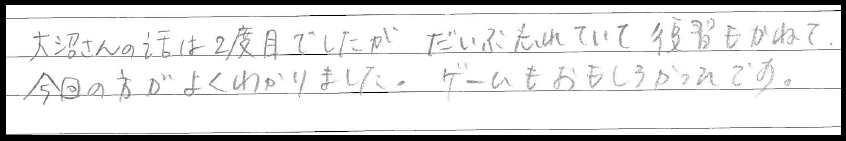 大沼さんの話は2度目でしたが だいぶ忘れていて 復習もかねて、
今回の方がよくわかりました。 ゲームもおもしろかったです。